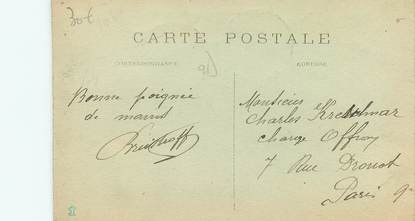 30€
CARTE POSTALE
CORRESPONDANCE
ADRESSE
91
Bonne poignée
de mains
Monsieur
Charles Kretchmar
charge Offroy
7 Rue Drouot
Paris 9e